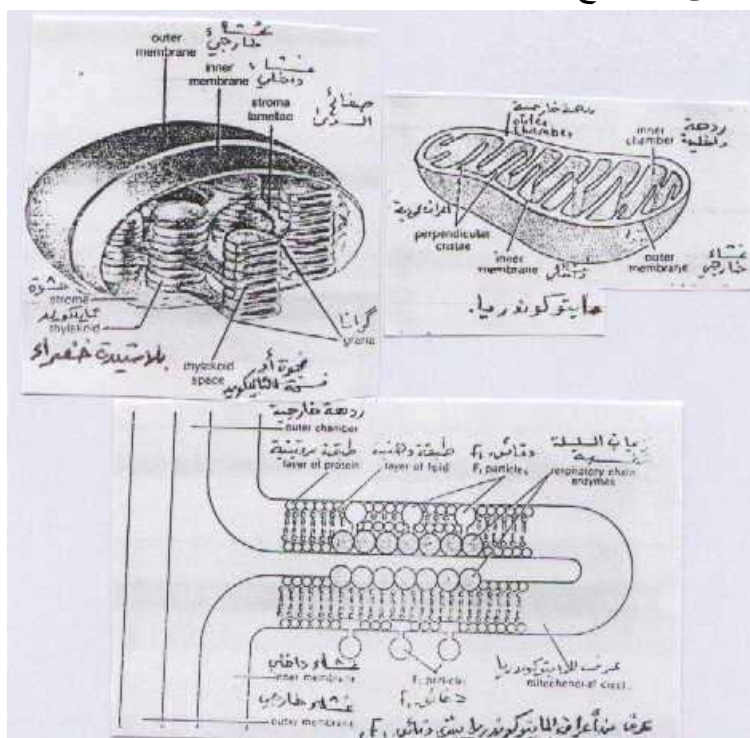 outer
membrane
غشاء
خارجي
inner
membrane
غشاء
داخلي
stroma
lamellae
صفائح
stroma
thylakoid
ثايلكويد
thylakoid
space
فجوة أو
فسحة الثايلكويد
grana
گرانا
بلاستيدة خضراء
ردهة خارجية
outer
chamber
inner
chamber
ردهة
داخلية
أعراف عمودية
perpendicular
cristae
inner
membrane
غشاء داخلي
outer
membrane
غشاء
خارجي
مايتوكوندريا.
ردهة خارجية
outer chamber
طبقة بروتينية
layer of protein
طبقة دهنية
layer of lipid
دقائق F₁
F₁ particles
السلسلة
respiratory chain
enzymes
غشاء داخلي
inner membrane
غشاء خارجي
outer membrane
F₁ particles
دقائق F₁
عرف المايتوكوندريا
mitochondrial crest
عرف من أعراف المايتوكوندريا دقائق F₁